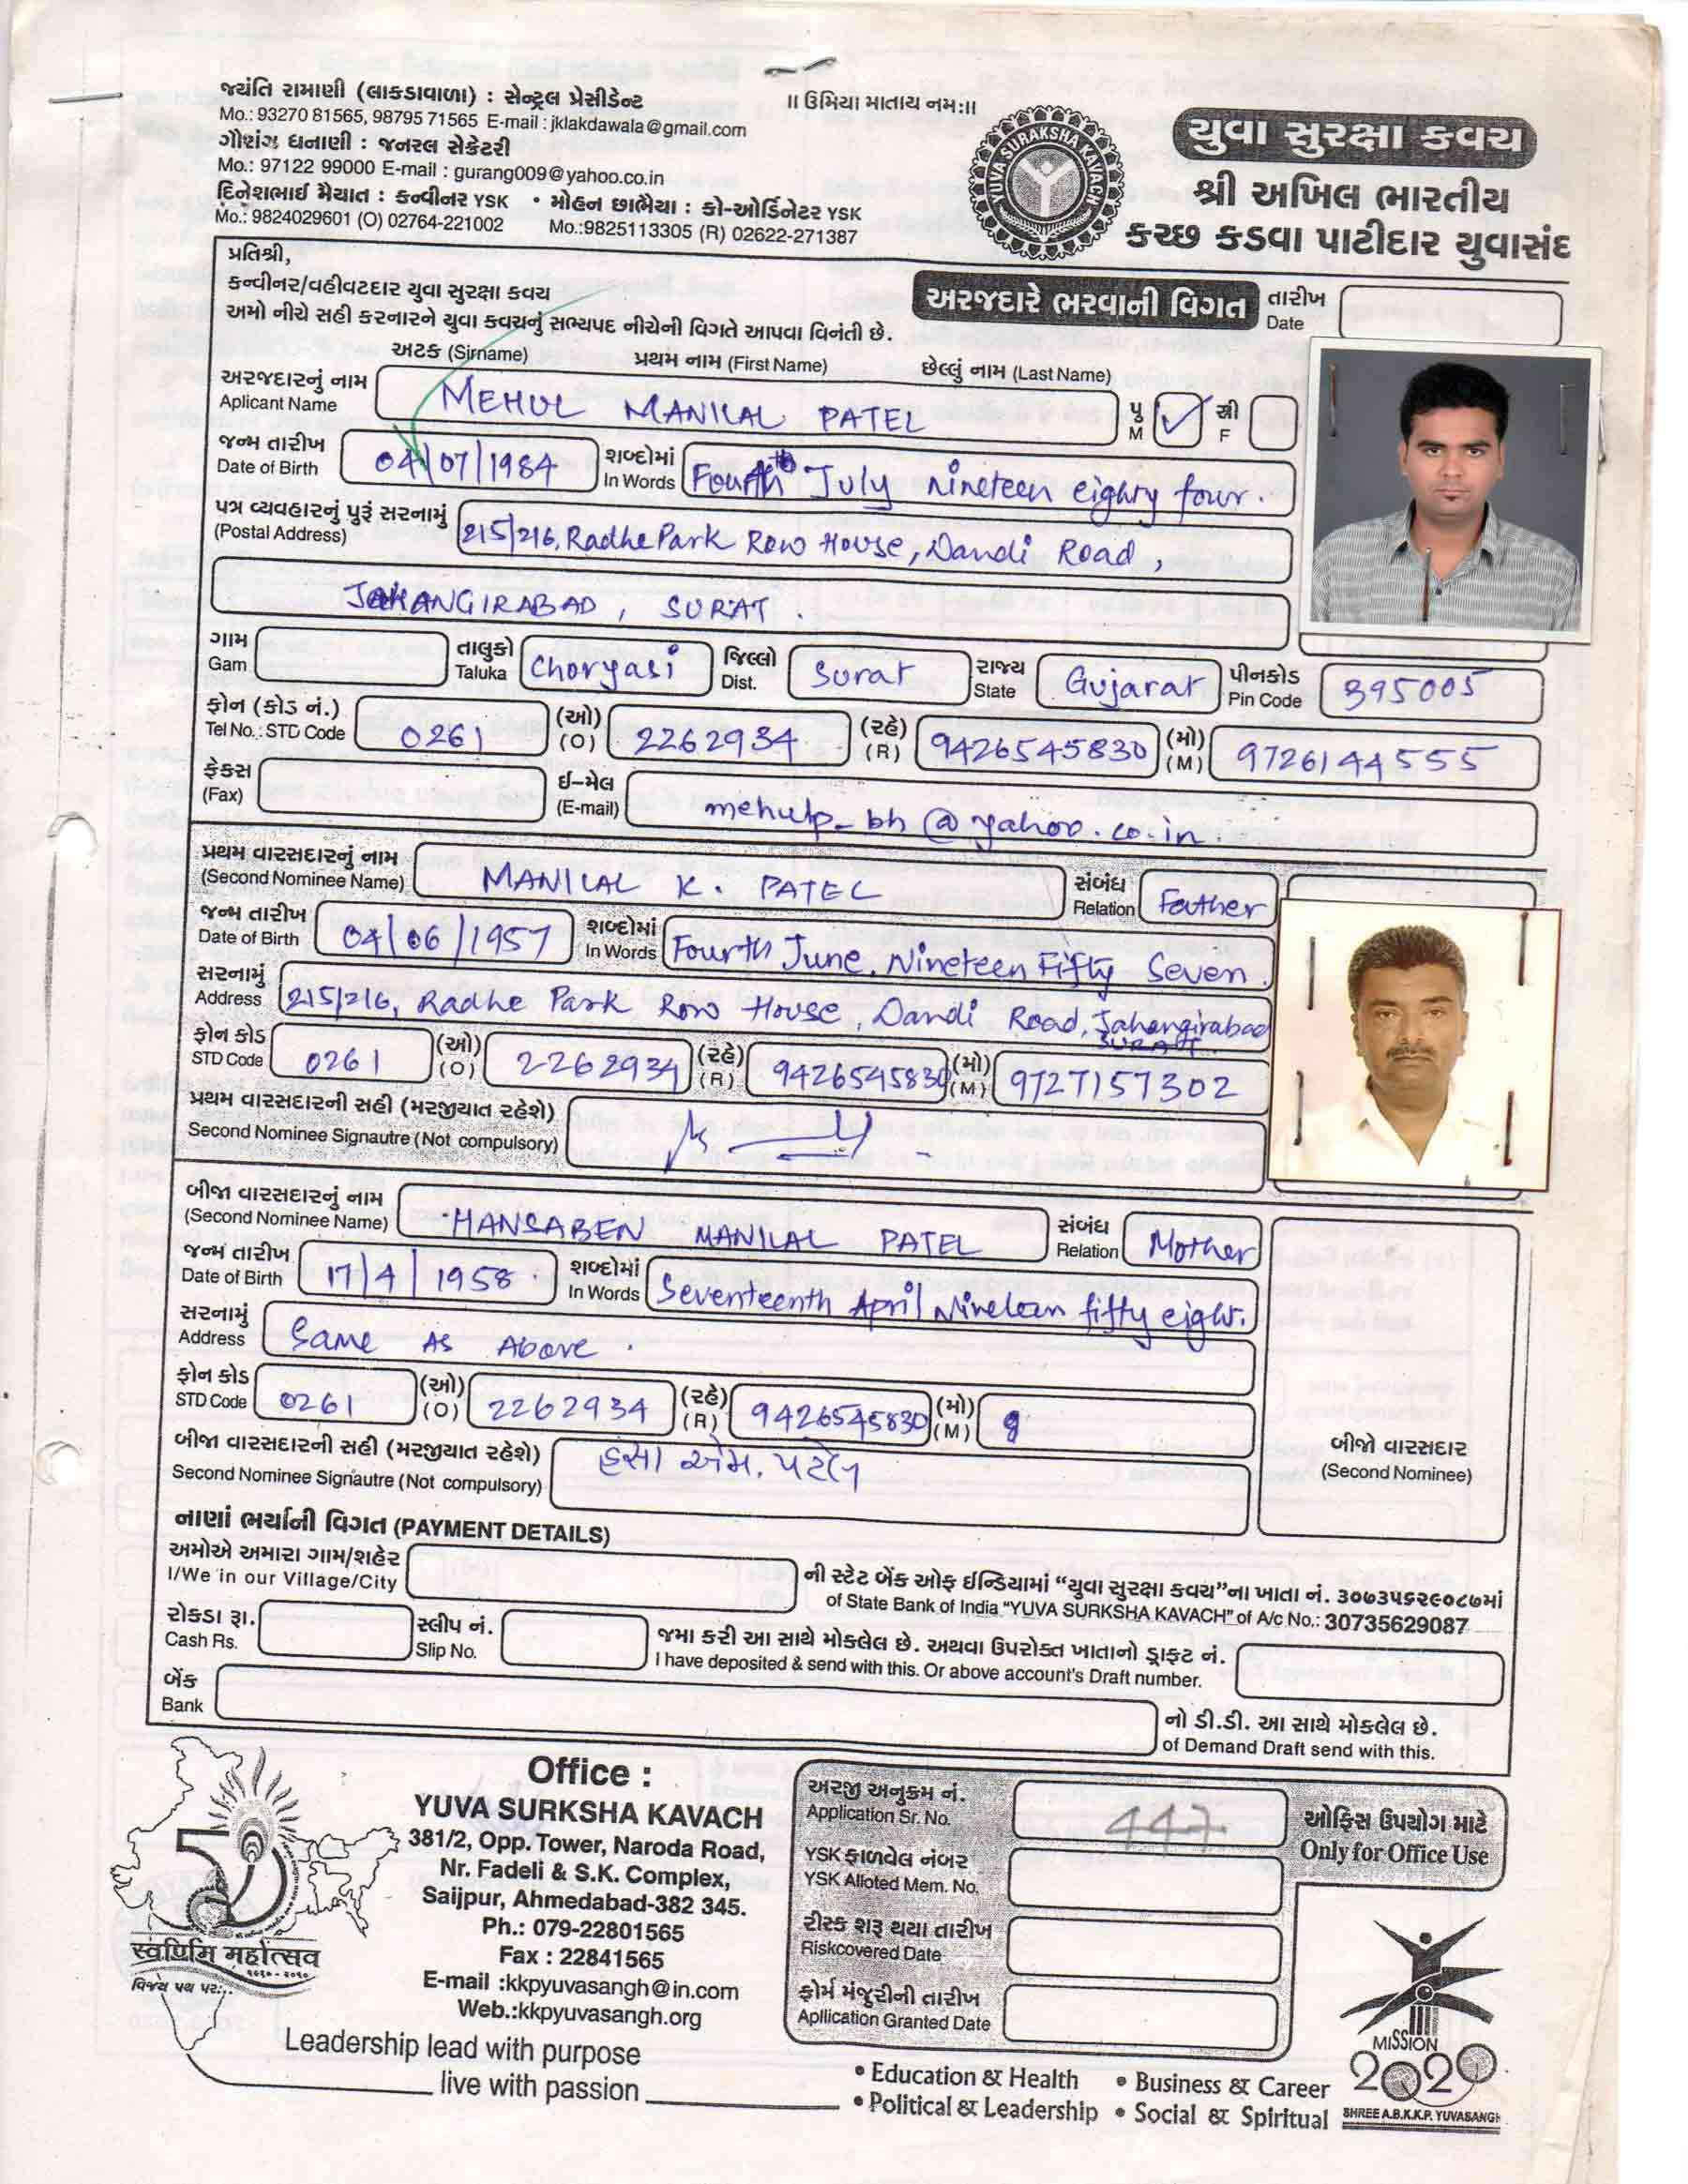 જયંતિ રામાણી (લાકડાવાળા) : સેન્ટ્રલ પ્રેસીડેન્ટ
Mo.: 93270 81565, 98795 71565 E-mail : jklakdawala@gmail.com
ગૌરાંગ ધનાણી : જનરલ સેક્રેટરી
Mo.: 97122 99000 E-mail : gurang009@yahoo.co.in
દિનેશભાઈ મૈયાત : કન્વીનર YSK • મોહન છાભૈયા : કો-ઓર્ડિનેટર YSK
Mo.: 9824029601 (O) 02764-221002 Mo.:9825113305 (R) 02622-271387
।। ઉમિયા માતાય નમઃ।।
YUVA SURAKSHA KAVACH
યુવા સુરક્ષા કવચ
શ્રી અખિલ ભારતીય
કચ્છ કડવા પાટીદાર યુવાસંઘ
પ્રતિશ્રી,
કન્વીનર/વહીવટદાર યુવા સુરક્ષા કવચ
અમો નીચે સહી કરનારને યુવા કવચનું સભ્યપદ નીચેની વિગતે આપવા વિનંતી છે.
અરજદારે ભરવાની વિગત
તારીખ
Date
અટક (Sirname) પ્રથમ નામ (First Name) છેલ્લું નામ (Last Name)
અરજદારનું નામ
Aplicant Name MEHUL MANILAL PATEL
પુ M ✓ સ્ત્રી F
જન્મ તારીખ
Date of Birth 04/07/1984
શબ્દોમાં
In Words Fourth July nineteen eighty four.
પત્ર વ્યવહારનું પુરૂં સરનામું
(Postal Address) 215/216, Radhe Park Row House, Dandi Road,
JAHANGIRABAD, SURAT.
ગામ
Gam
તાલુકો
Taluka Choryasi
જિલ્લો
Dist. Surat
રાજ્ય
State Gujarat
પીનકોડ
Pin Code 395005
ફોન (કોડ નં.)
Tel No.: STD Code 0261
(ઓ)
(O) 2262934
(રહે)
(R) 9426545830
(મો)
(M) 9726144555
ફેક્સ
(Fax)
ઈ-મેલ
(E-mail) mehulp_bh@yahoo.co.in
પ્રથમ વારસદારનું નામ
(Second Nominee Name) MANILAL K. PATEL
સંબંધ
Relation Father
જન્મ તારીખ
Date of Birth 04/06/1957
શબ્દોમાં
In Words Fourth June, Nineteen Fifty Seven
સરનામું
Address 215/216, Radhe Park Row House, Dandi Road, Jahangirabad
SURAT
ફોન કોડ
STD Code 0261
(ઓ)
(O) 2262934
(રહે)
(R) 9426545830
(મો)
(M) 9727157302
પ્રથમ વારસદારની સહી (મરજીયાત રહેશે)
Second Nominee Signautre (Not compulsory)
બીજા વારસદારનું નામ
(Second Nominee Name) HANSABEN MANILAL PATEL
સંબંધ
Relation Mother
જન્મ તારીખ
Date of Birth 17/4/1958
શબ્દોમાં
In Words Seventeenth April Nineteen fifty eight.
સરનામું
Address Same As Above.
ફોન કોડ
STD Code 0261
(ઓ)
(O) 2262934
(રહે)
(R) 9426545830
(મો)
(M) 9
બીજા વારસદારની સહી (મરજીયાત રહેશે)
Second Nominee Signautre (Not compulsory) હંસા એમ. પટેલ
બીજો વારસદાર
(Second Nominee)
નાણાં ભર્યાની વિગત (PAYMENT DETAILS)
અમોએ અમારા ગામ/શહેર
I/We in our Village/City
ની સ્ટેટ બેંક ઓફ ઈન્ડિયામાં “યુવા સુરક્ષા કવચ”ના ખાતા નં. ૩૦૭૩૫૬૨૯૦૮૭માં
of State Bank of India "YUVA SURKSHA KAVACH" of A/c No.: 30735629087
રોકડા રૂા.
Cash Rs.
સ્લીપ નં.
Slip No.
જમા કરી આ સાથે મોકલેલ છે. અથવા ઉપરોક્ત ખાતાનો ડ્રાફ્ટ નં.
I have deposited & send with this. Or above account's Draft number.
બેંક
Bank
નો ડી.ડી. આ સાથે મોકલેલ છે.
of Demand Draft send with this.
50
स्वर्णिम महोत्सव
૨૦૧૦ - ૨૦૧૦
વિજય પથ પર...
Office :
YUVA SURKSHA KAVACH
381/2, Opp. Tower, Naroda Road,
Nr. Fadeli & S.K. Complex,
Saijpur, Ahmedabad-382 345.
Ph.: 079-22801565
Fax : 22841565
E-mail :kkpyuvasangh@in.com
Web.:kkpyuvasangh.org
અરજી અનુક્રમ નં.
Application Sr. No. 447
YSK ફાળવેલ નંબર
YSK Alloted Mem. No.
રીસ્ક શરૂ થયા તારીખ
Riskcovered Date
ફોર્મ મંજુરીની તારીખ
Apllication Granted Date
ઓફિસ ઉપયોગ માટે
Only for Office Use
Leadership lead with purpose
live with passion
• Education & Health • Business & Career
• Political & Leadership • Social & Spiritual
MISSION
2020
SHREE A.B.K.K.P. YUVASANGH